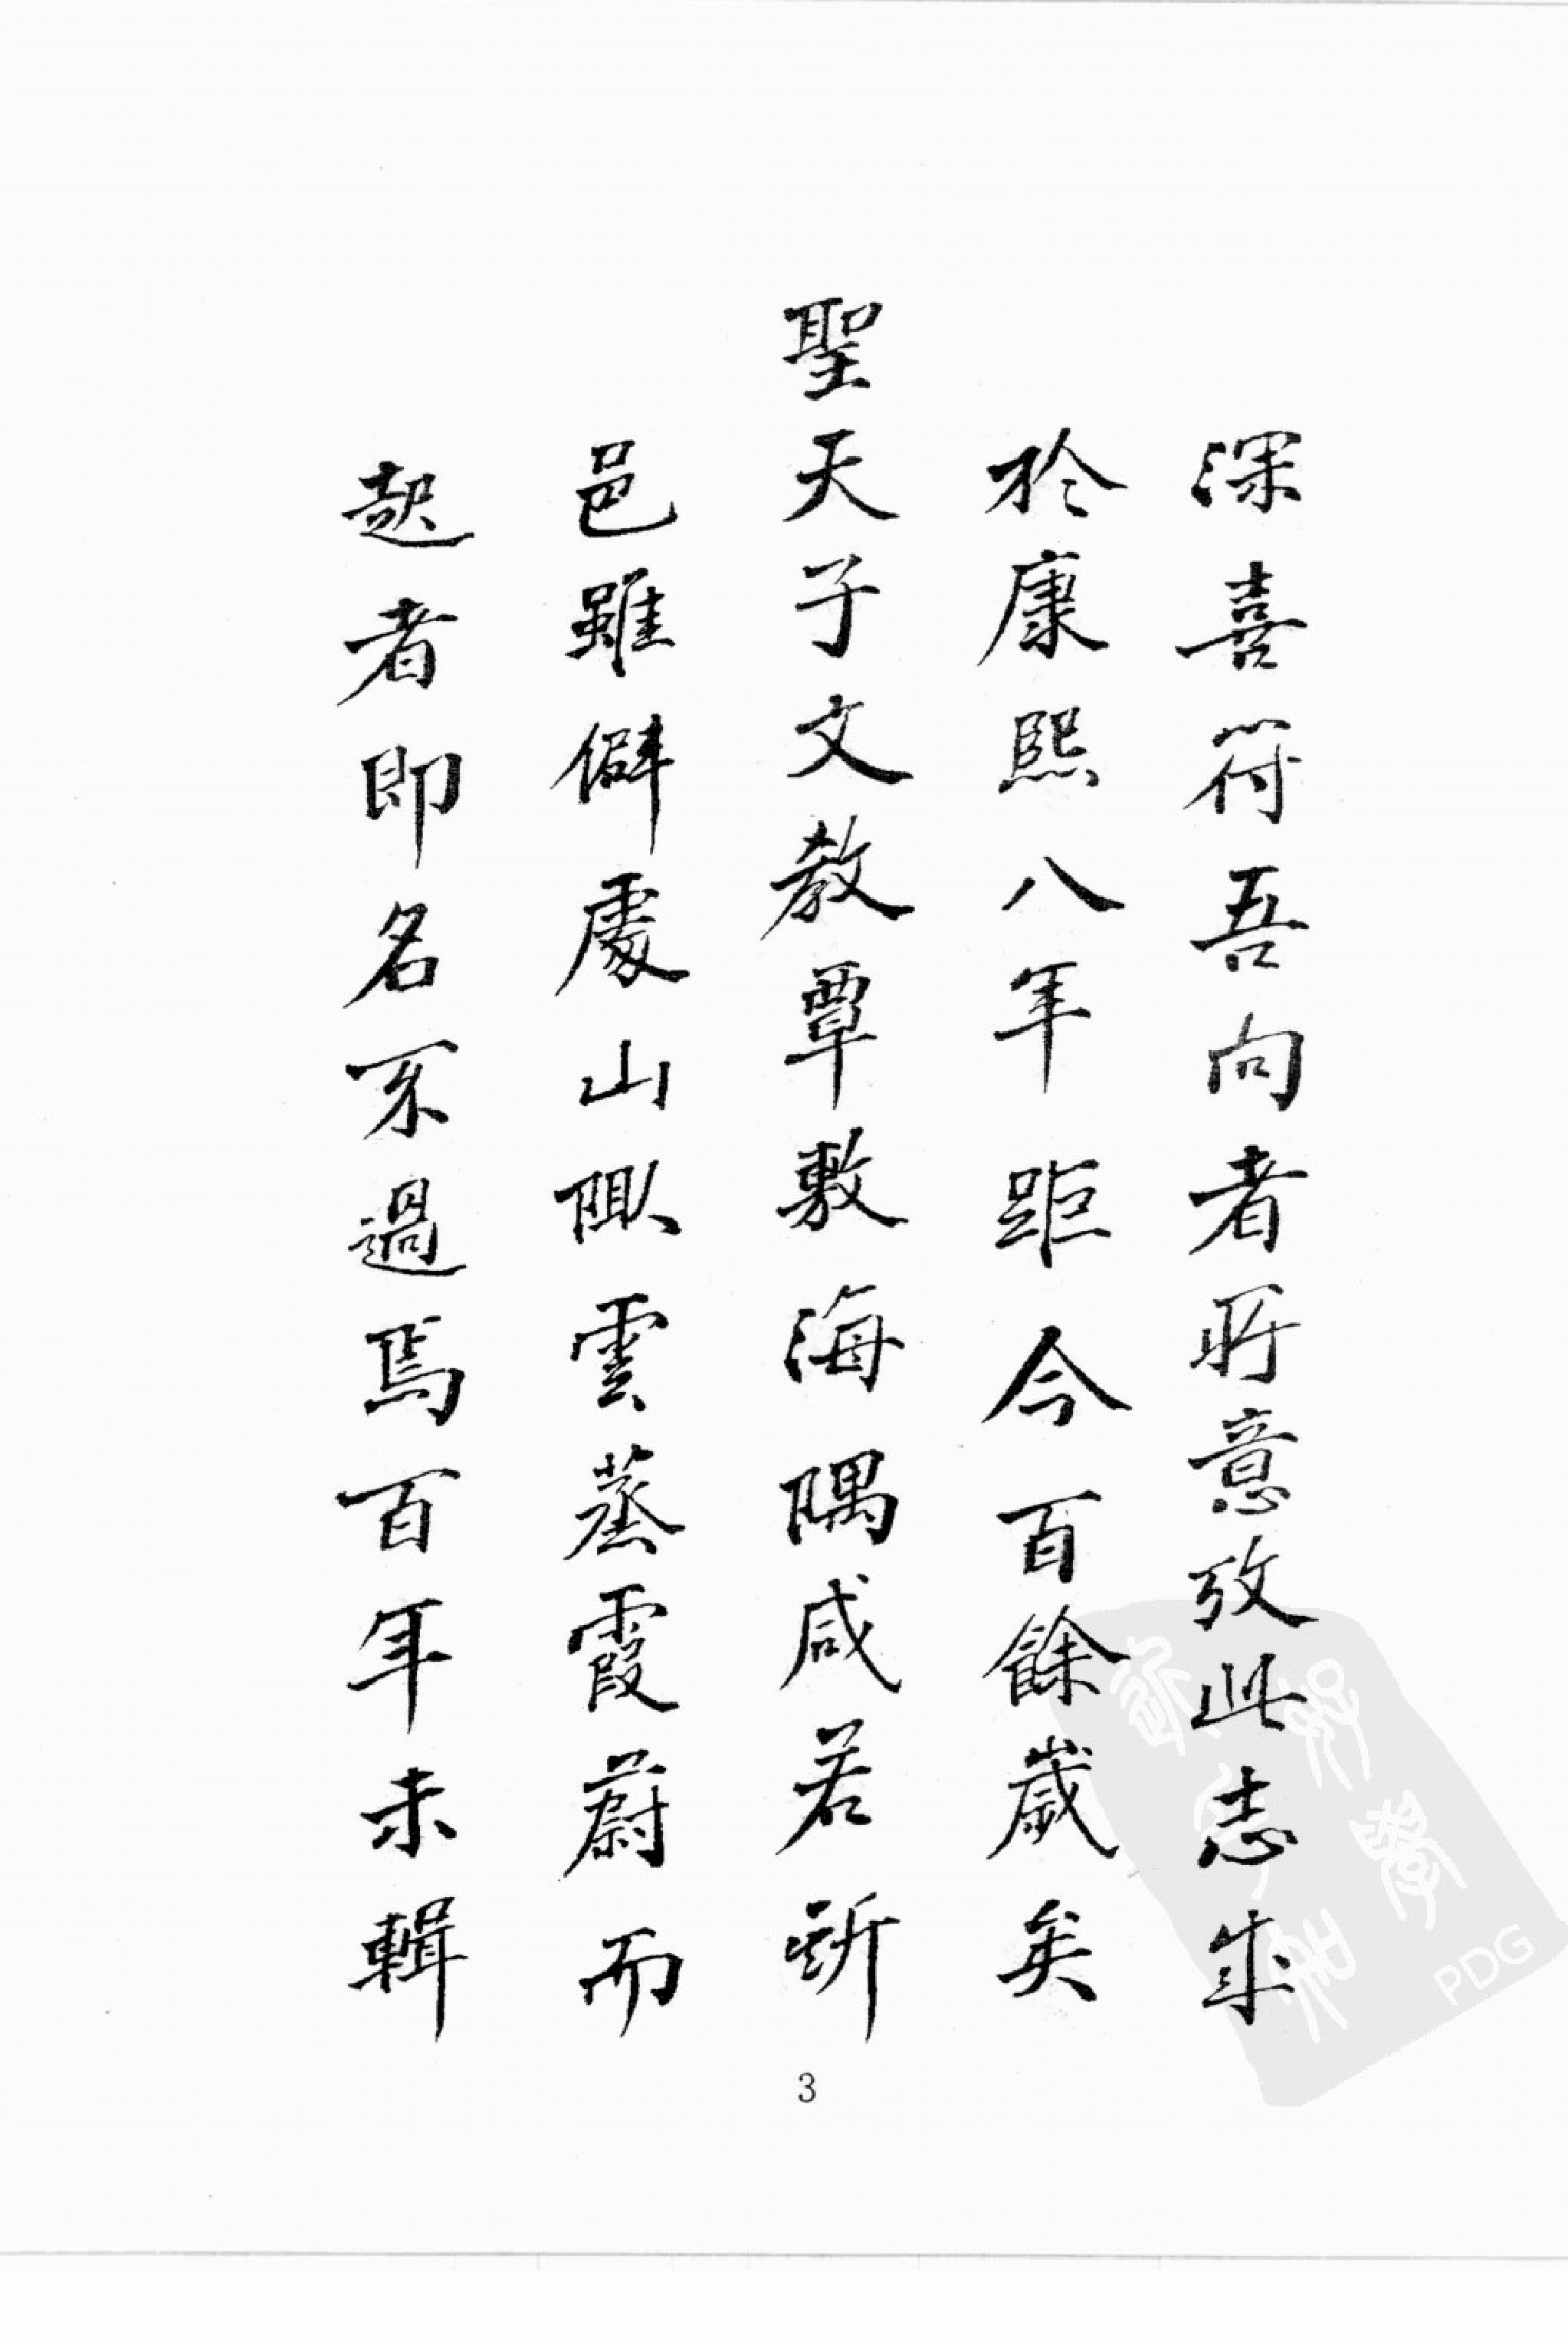 深喜符吾向者所意攷此志成
於康熙八年距今百餘歲矣
聖天子文教覃敷海隅咸若斯
邑雖僻處山陬雲蒸霞蔚而
起者即名不過焉百年未輯
3
PDG